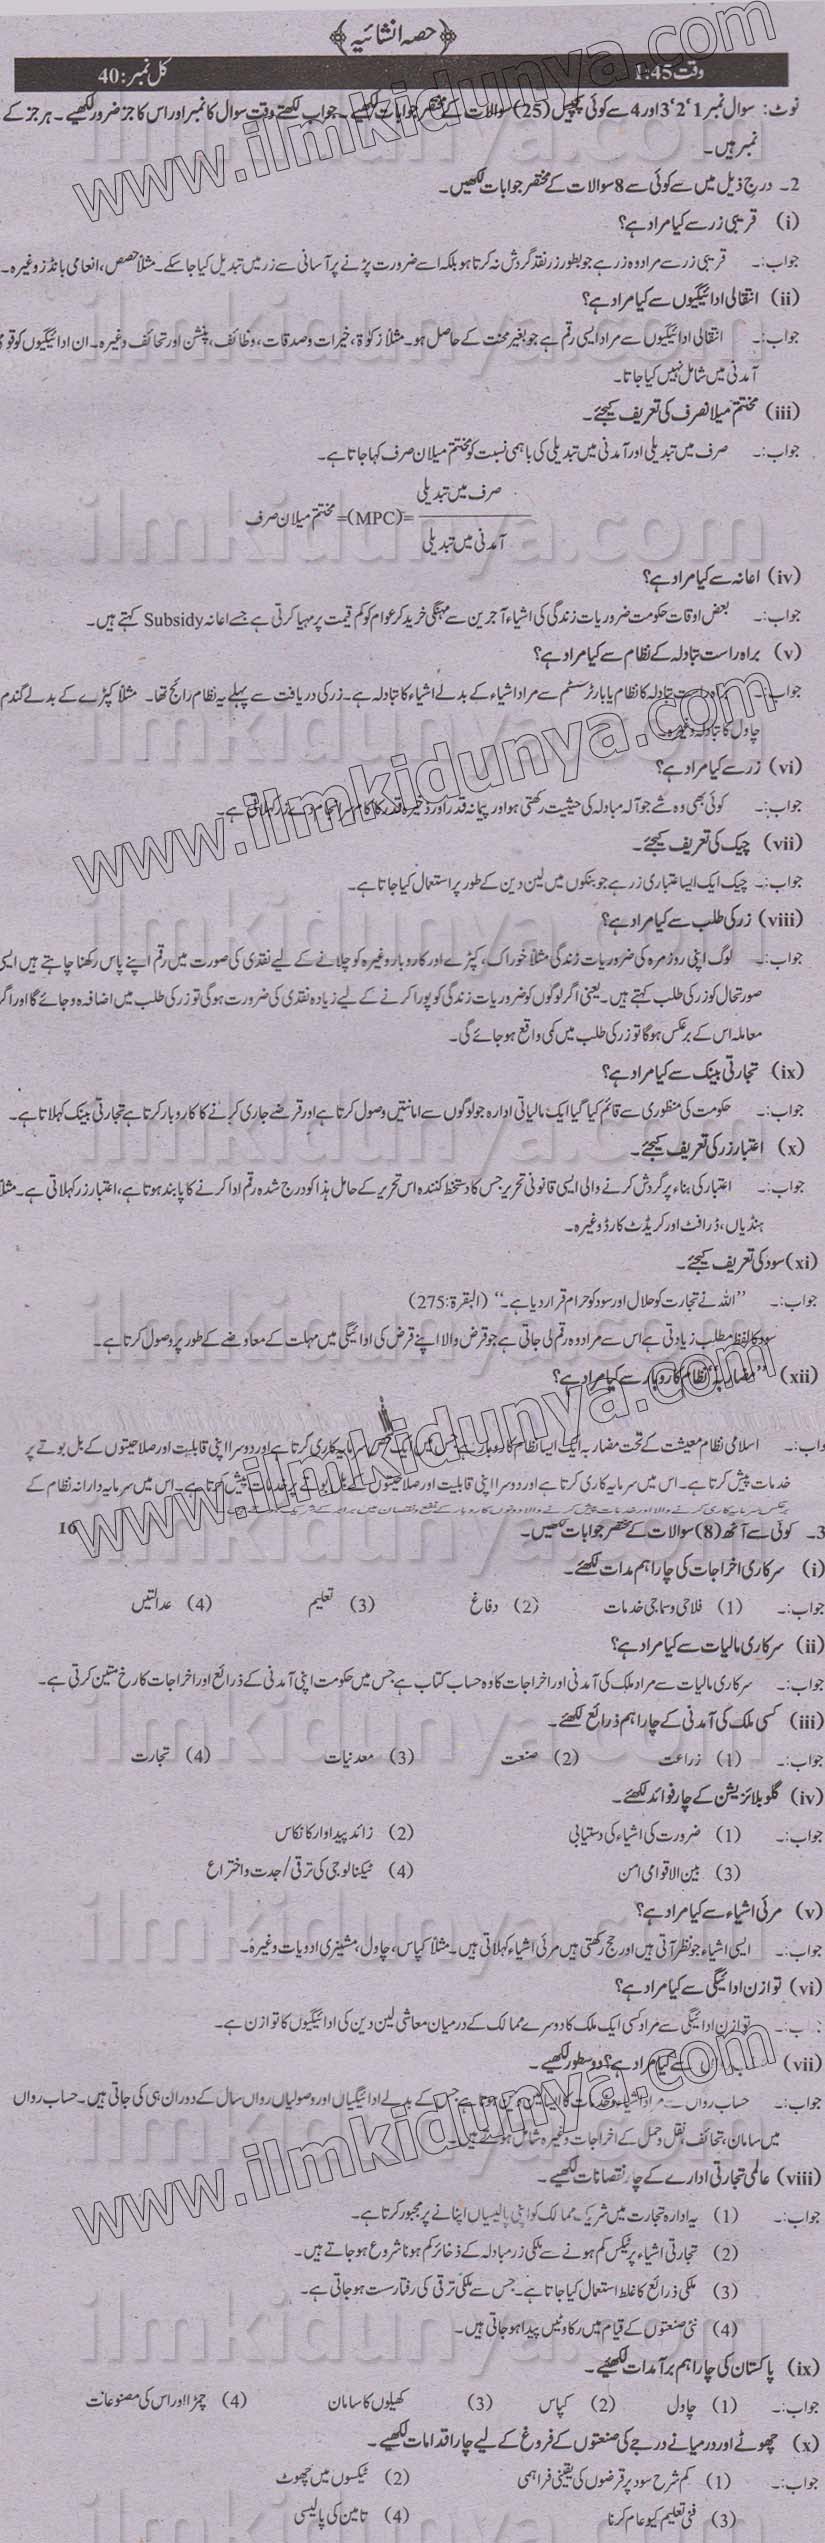 حصہ انشائیہ
وقت 1:45 کل نمبر: 40
نوٹ: سوال نمبر 1'2'3 اور 4 سے کوئی پچیس (25) سوالات کے مختصر جوابات لکھیے۔ جواب لکھتے وقت سوال کا نمبر اور اس کا جز ضرور لکھیے۔ ہر جز کے
نمبر ہیں۔
2۔ درج ذیل میں سے کوئی سے 8 سوالات کے مختصر جوابات لکھیں۔
(i) قریبی زر سے کیا مراد ہے؟
جواب:۔ قریبی زر سے مراد وہ زر ہے جو بطور زر نقد گردش نہ کرتا ہو بلکہ اسے ضرورت پڑنے پر آسانی سے زر میں تبدیل کیا جا سکے۔ مثلاً حصص، انعامی بانڈز وغیرہ۔
(ii) انتقالی ادائیگیوں سے کیا مراد ہے؟
جواب:۔ انتقالی ادائیگیوں سے مراد ایسی رقم ہے جو بغیر محنت کے حاصل ہو۔ مثلاً زکوٰۃ، خیرات وصدقات، وظائف، پنشن اور تحائف وغیرہ۔ ان ادائیگیوں کو قومی
آمدنی میں شامل نہیں کیا جاتا۔
(iii) مختتم میلانصرف کی تعریف کیجئے۔
جواب:۔ صرف میں تبدیلی اور آمدنی میں تبدیلی کی باہمی نسبت کو مختتم میلان صرف کہا جاتا ہے۔
صرف میں تبدیلی
مختتم میلان صرف =(MPC)=
آمدنی میں تبدیلی
(iv) اعانہ سے کیا مراد ہے؟
جواب:۔ بعض اوقات حکومت ضروریات زندگی کی اشیاء آجرین سے مہنگی خرید کر عوام کو کم قیمت پر مہیا کرتی ہے جسے اعانہ Subsidy کہتے ہیں۔
(v) براہ راست تبادلہ کے نظام سے کیا مراد ہے؟
جواب:۔ براہ راست تبادلہ کا نظام یا بارٹر سسٹم سے مراد اشیاء کے بدلے اشیاء کا تبادلہ ہے۔ زر کی دریافت سے پہلے یہ نظام رائج تھا۔ مثلاً کپڑے کے بدلے گندم
چاول کا تبادلہ وغیرہ۔
(vi) زر سے کیا مراد ہے؟
جواب:۔ کوئی بھی وہ شے جو آلہ مبادلہ کی حیثیت رکھتی ہو اور پیمانہ قدر اور ذخیرہ قدر کا کام سرانجام دے زر کہلاتی ہے۔
(vii) چیک کی تعریف کیجئے۔
جواب:۔ چیک ایک ایسا اعتباری زر ہے جو بنکوں میں لین دین کے طور پر استعمال کیا جاتا ہے۔
(viii) زر کی طلب سے کیا مراد ہے؟
جواب:۔ لوگ اپنی روزمرہ کی ضروریات زندگی مثلاً خوراک، کپڑے اور کاروبار وغیرہ کو چلانے کے لیے نقدی کی صورت میں رقم اپنے پاس رکھنا چاہتے ہیں ایسی
صورتحال کو زر کی طلب کہتے ہیں۔ یعنی اگر لوگوں کو ضروریات زندگی کو پورا کرنے کے لیے زیادہ نقدی کی ضرورت ہوگی تو زر کی طلب میں اضافہ ہو جائے گا اور اگر
معاملہ اس کے برعکس ہوگا تو زر کی طلب میں کمی واقع ہو جائے گی۔
(ix) تجارتی بینک سے کیا مراد ہے؟
جواب:۔ حکومت کی منظوری سے قائم کیا گیا ایک مالیاتی ادارہ جو لوگوں سے امانتیں وصول کرتا ہے اور قرضے جاری کرنے کا کاروبار کرتا ہے تجارتی بینک کہلاتا ہے۔
(x) اعتبار زر کی تعریف کیجئے۔
جواب:۔ اعتبار کی بناء پر گردش کرنے والی ایسی قانونی تحریر جس کا دستخط کنندہ اس تحریر کے حامل ہذا کو درج شدہ رقم ادا کرنے کا پابند ہوتا ہے، اعتبار زر کہلاتی ہے۔ مثلاً
ہنڈیاں، ڈرافٹ اور کریڈٹ کارڈ وغیرہ۔
(xi) سود کی تعریف کیجئے۔
جواب:۔ ''اللہ نے تجارت کو حلال اور سود کو حرام قرار دیا ہے۔'' (البقرۃ:275)
سود کا لفظ مطلب زیادتی ہے اس سے مراد وہ رقم لی جاتی ہے جو قرض والا اپنے قرض کی ادائیگی میں مہلت کے معاوضے کے طور پر وصول کرتا ہے۔
(xii) ''مضاربہ'' نظام کاروبار سے کیا مراد ہے؟
جواب:۔ اسلامی نظام معیشت کے تحت مضاربہ ایک ایسا نظام کاروبار ہے جس میں ایک شخص سرمایہ کاری کرتا ہے اور دوسرا اپنی قابلیت اور صلاحیتوں کے بل بوتے پر
خدمات پیش کرتا ہے۔ اس میں سرمایہ کاری کرتا ہے اور دوسرا اپنی قابلیت اور صلاحیتوں کے بل بوتے پر خدمات پیش کرتا ہے۔ اس میں سرمایہ دارانہ نظام کے
برعکس سرمایہ کاری کرنے والا اور خدمات پیش کرنے والا دونوں کاروبار کے نفع و نقصان میں برابر کے شریک ہوتے ہیں۔
3۔ کوئی سے آٹھ (8) سوالات کے مختصر جوابات لکھیں۔ 16
(i) سرکاری اخراجات کی چار اہم مدات لکھئے۔
جواب:۔ (1) فلاحی وسماجی خدمات (2) دفاع (3) تعلیم (4) عدالتیں
(ii) سرکاری مالیات سے کیا مراد ہے؟
جواب:۔ سرکاری مالیات سے مراد ملک کی آمدنی اور اخراجات کا وہ حساب کتاب ہے جس میں حکومت اپنی آمدنی کے ذرائع اور اخراجات کا رخ متین کرتی ہے۔
(iii) کسی ملک کی آمدنی کے چار اہم ذرائع لکھئے۔
جواب:۔ (1) زراعت (2) صنعت (3) معدنیات (4) تجارت
(iv) گلوبلائزیشن کے چار فوائد لکھئے۔
جواب:۔ (1) ضرورت کی اشیاء کی دستیابی (2) زائد پیداوار کا نکاس
(3) بین الاقوامی امن (4) ٹیکنالوجی کی ترقی / جدت و اختراع
(v) مرئی اشیاء سے کیا مراد ہے؟
جواب:۔ ایسی اشیاء جو نظر آتی ہیں اور حج رکھتی ہیں مرئی اشیاء کہلاتی ہیں۔ مثلاً کپاس، چاول، مشینری ادویات وغیرہ۔
(vi) توازن ادائیگی سے کیا مراد ہے؟
جواب:۔ توازن ادائیگی سے مراد کسی ایک ملک کا دوسرے ممالک کے درمیان معاشی لین دین کی ادائیگیوں کا توازن ہے۔
(vii) سے کیا مراد ہے؟ دو سطور لکھیے۔
جواب:۔ حساب رواں سے مراد اشیاء و خدمات کا ایسا لین دین ہوتا ہے جس کے بدلے ادائیگیاں اور وصولیاں رواں سال کے دوران ہی کی جاتی ہیں۔ حساب رواں
میں سامان، تحائف، نقل و حمل کے اخراجات وغیرہ شامل ہوتے ہیں۔
(viii) عالمی تجارتی ادارے کے چار نقصانات لکھیے۔
جواب:۔ (1) یہ ادارہ تجارت میں شریک ممالک کو اپنی پالیسیاں اپنانے پر مجبور کرتا ہے۔
(2) تجارتی اشیاء پر ٹیکس کم ہونے سے ملکی زرمبادلہ کے ذخائر کم ہونا شروع ہو جاتے ہیں۔
(3) ملکی ذرائع کا غلط استعمال کیا جاتا ہے۔ جس سے ملکی ترقی کی رفتار سست ہو جاتی ہے۔
(4) نئی صنعتوں کے قیام میں رکاوٹیں پیدا ہو جاتی ہیں۔
(ix) پاکستان کی چار اہم برآمدات لکھئیے۔
جواب:۔ (1) چاول (2) کپاس (3) کھیلوں کا سامان (4) چمڑا اور اس کی مصنوعات
(x) چھوٹے اور درمیانے درجے کی صنعتوں کے فروغ کے لیے چار اقدامات لکھیے۔
جواب:۔ (1) کم شرح سود پر قرضوں کی یقینی فراہمی (2) ٹیکسوں میں چھوٹ
(3) فنی تعلیم کیو عام کرنا (4) تامین کی پالیسی